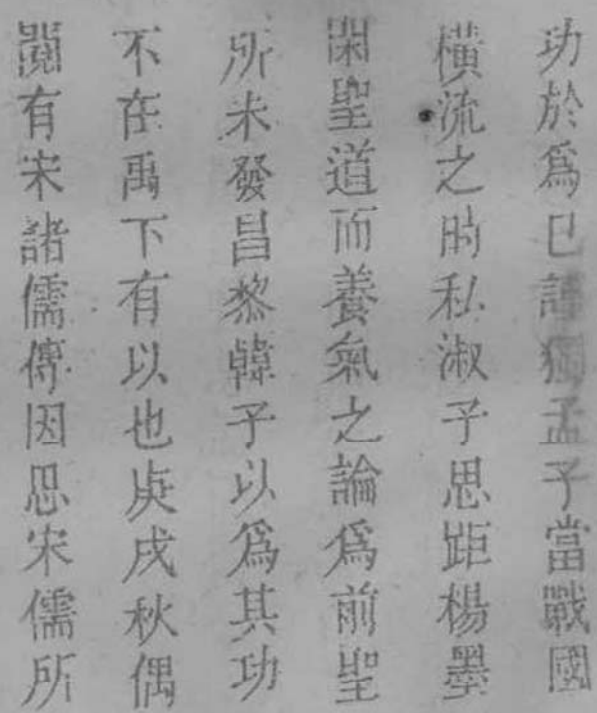 功於爲已謹獨孟子當戰國
橫流之時私淑子思距楊墨
閑聖道而養氣之論爲前聖
所未發昌黎韓子以爲其功
不在禹下有以也庚戌秋偶
閱有宋諸儒傳因思宋儒所